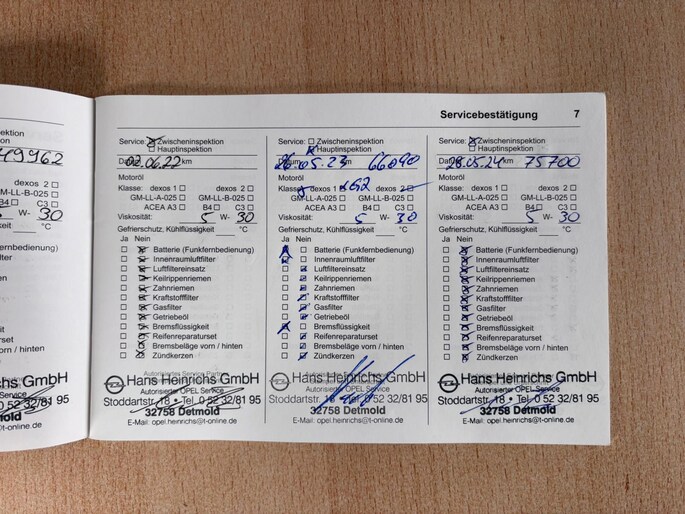 Servicebestätigung 7
ektion
ektion
49962
dexos 2
GM-LL-B-025
B4 C3
W- 30
keit °C
ernbedienung)
ilter
z
en
r
t
ratur­set
rn / hinten
Heinrichs GmbH
Service
Tel. 0 52 32/81 95
Detmold
t-online.de
Service: Zwischeninspektion
Hauptinspektion
Datum 02.06.22 km
Motoröl
Klasse: dexos 1 dexos 2
GM-LL-A-025 GM-LL-B-025
ACEA A3 B4 C3
Viskosität: 5 W- 30
Gefrierschutz, Kühlflüssigkeit °C
Ja Nein
Batterie (Funkfernbedienung)
Innenraumluftfilter
Luftfiltereinsatz
Keilrippenriemen
Zahnriemen
Kraftstofffilter
Gasfilter
Getriebeöl
Bremsflüssigkeit
Reifenreparaturset
Bremsbeläge vorn / hinten
Zündkerzen
Autorisierter Service Partner
Hans Heinrichs GmbH
Autorisierter OPEL Service
Stoddartstr. 18 • Tel. 0 52 32/81 95
32758 Detmold
E-Mail: opel.heinrichs@t-online.de
Service: Zwischeninspektion
Hauptinspektion
Datum 26.05.23 66090
Motoröl
Klasse: dexos 1 dexos 2
GM-LL-A-025 GM-LL-B-025
ACEA A3 B4 C3
Viskosität: 5 W- 30
Gefrierschutz, Kühlflüssigkeit °C
Ja Nein
Batterie (Funkfernbedienung)
Innenraumluftfilter
Luftfiltereinsatz
Keilrippenriemen
Zahnriemen
Kraftstofffilter
Gasfilter
Getriebeöl
Bremsflüssigkeit
Reifenreparaturset
Bremsbeläge vorn / hinten
Zündkerzen
Hans Heinrichs GmbH
Autorisierter OPEL Service
Stoddartstr. 18 Tel. 0 52 32/81 95
32758 Detmold
E-Mail: opel.heinrichs@t-online.de
Service: Zwischeninspektion
Hauptinspektion
Datum 28.05.24 km 75700
Motoröl
Klasse: dexos 1 dexos 2
GM-LL-A-025 GM-LL-B-025
ACEA A3 B4 C3
Viskosität: 5 W- 30
Gefrierschutz, Kühlflüssigkeit °C
Ja Nein
Batterie (Funkfernbedienung)
Innenraumluftfilter
Luftfiltereinsatz
Keilrippenriemen
Zahnriemen
Kraftstofffilter
Gasfilter
Getriebeöl
Bremsflüssigkeit
Reifenreparaturset
Bremsbeläge vorn / hinten
Zündkerzen
Hans Heinrichs GmbH
Autorisierter OPEL Service
Stoddartstr. 18 • Tel. 0 52 32/81 95
32758 Detmold
E-Mail: opel.heinrichs@t-online.de